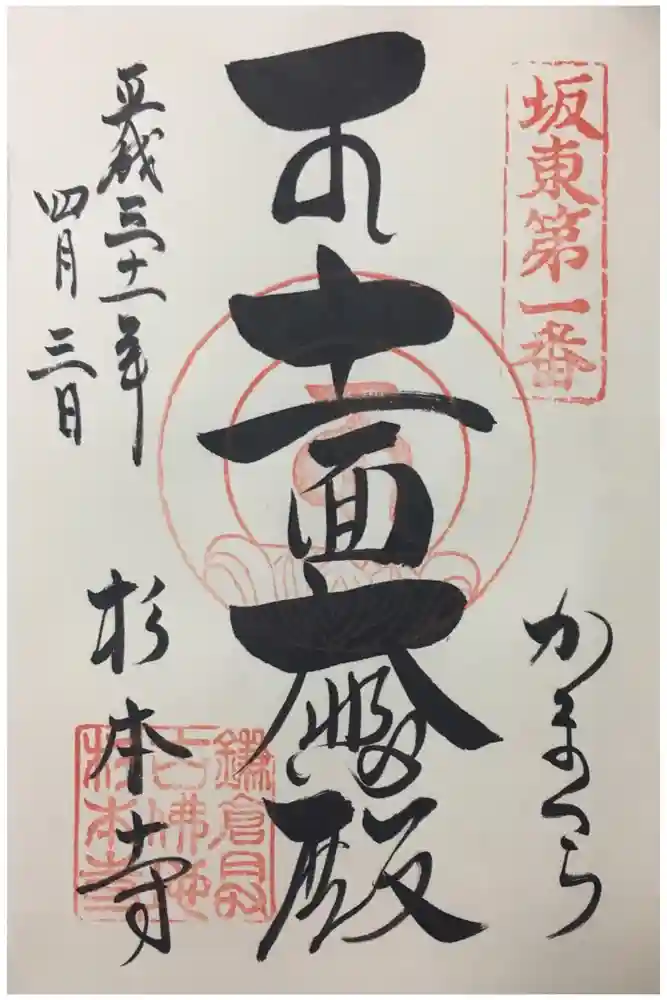 坂東第一番
かまくら
十一面大悲殿
平成三十一年
四月三日
杉本寺
鎌倉最
古佛地
杉本寺